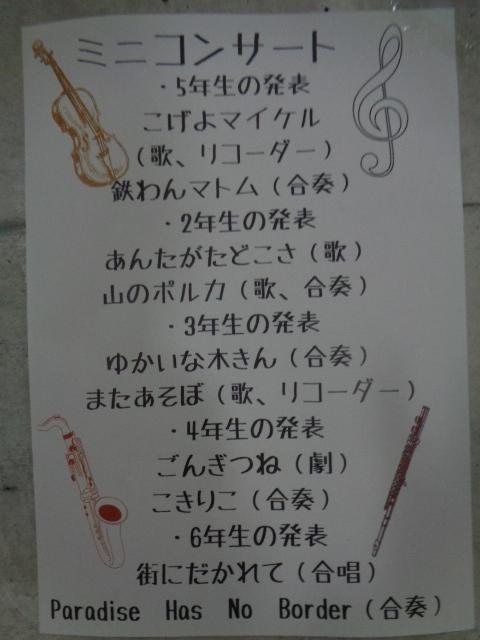 ミニコンサート
・5年生の発表
こげよマイケル
(歌、リコーダー)
鉄わんマトム(合奏)
・2年生の発表
あんたがたどこさ(歌)
山のポルカ(歌、合奏)
・3年生の発表
ゆかいな木きん(合奏)
またあそぼ(歌、リコーダー)
・4年生の発表
ごんぎつね(劇)
こきりこ(合奏)
・6年生の発表
街にだかれて(合唱)
Paradise Has No Border(合奏)